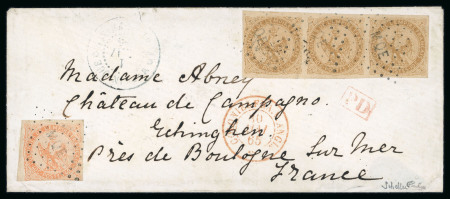 Madame Abney
Château de Campagno
PD
Echinghen
Près de Boulogne Sur Mer
France